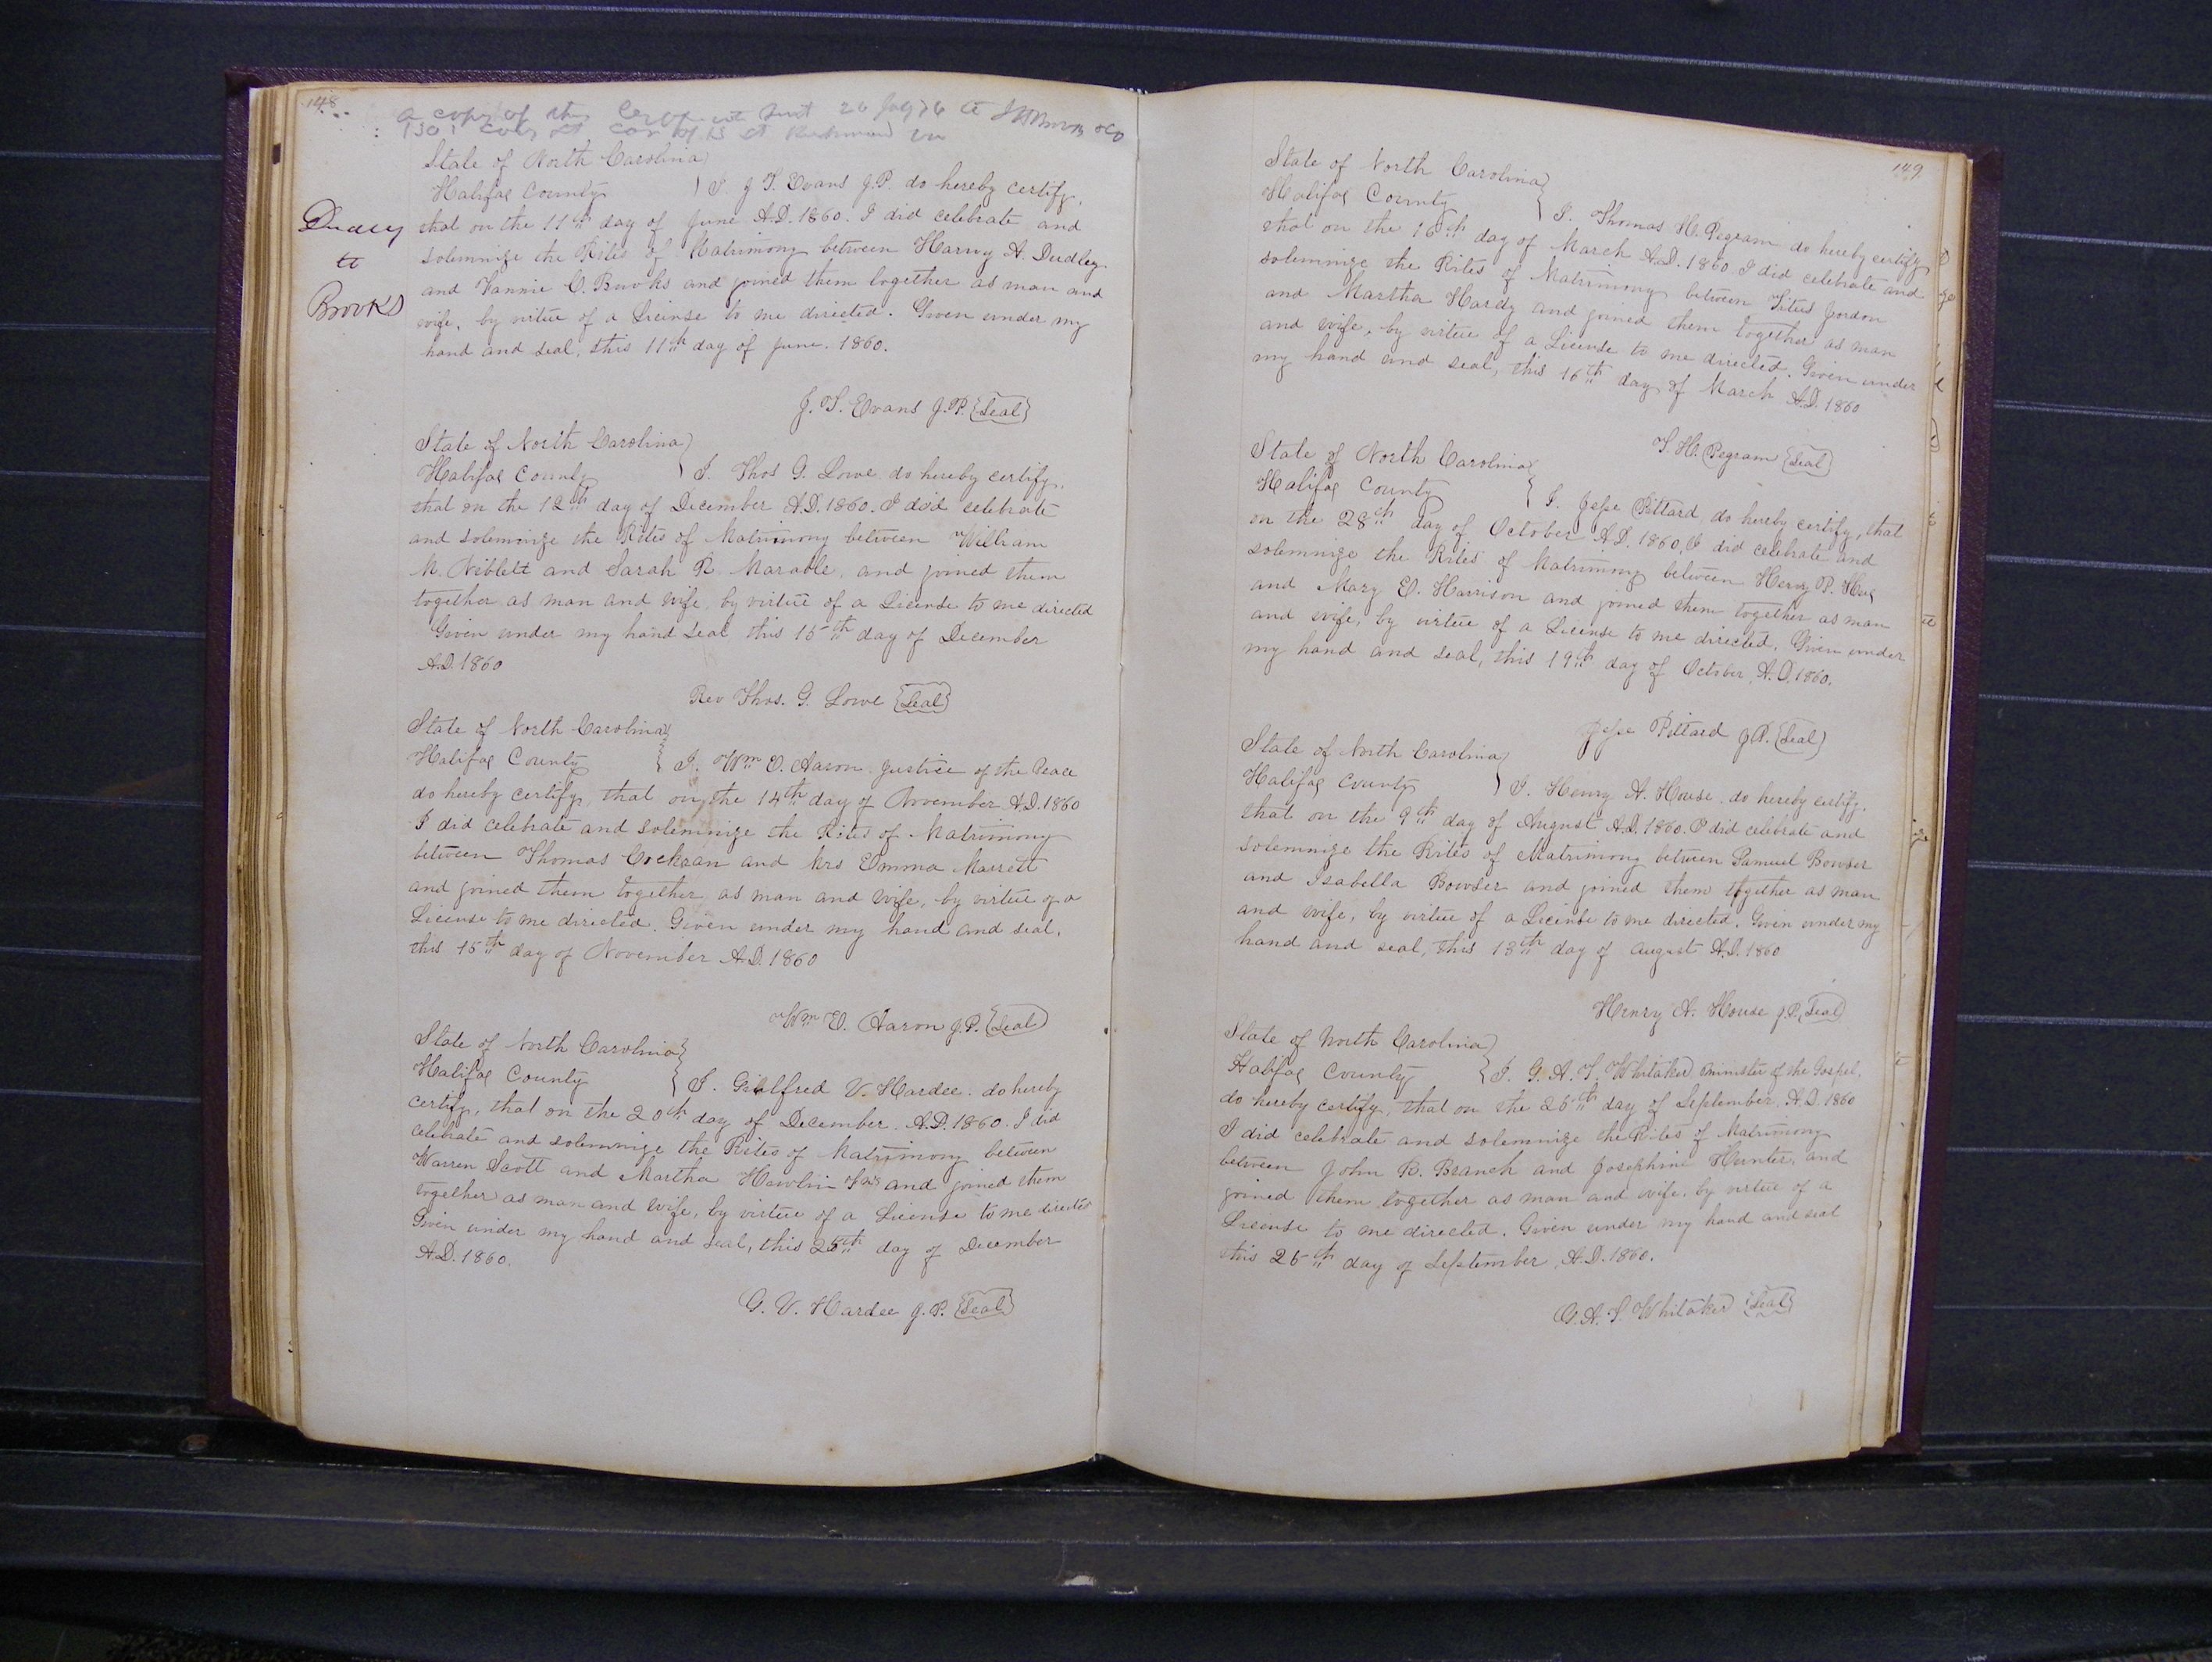 148
a copy of this
State of North Carolina
Halifax County } I. J. T. Evans J.P. do hereby certify,
that on the 11th day of June A.D. 1860. I did celebrate and
solemnize the Rites of Matrimony between Harvey A. Dudley
and Fannie C. Brooks and joined them together as man and
wife, by virtue of a License to me directed. Given under my
hand and seal, this 11th day of June. 1860.
J. T. Evans J.P. {Seal}
Dudley
to
Brooks
State of North Carolina
Halifax County } I. Thos G. Lowe do hereby certify,
that on the 12th day of December A.D. 1860. I did celebrate
and solemnize the Rites of Matrimony between William
M. Niblett and Sarah R. Marable, and joined them
together as man and wife, by virtue of a License to me directed
Given under my hand seal this 15th day of December
A.D. 1860
Rev Thos. G. Lowe {Seal}
State of North Carolina
Halifax County } I. Wm O. Aaron Justice of the Peace
do hereby certify, that on the 14th day of November A.D. 1860
I did celebrate and solemnize the Rites of Matrimony
between Thomas Cockran and Mrs Emma Marrett
and joined them together as man and wife, by virtue of a
License to me directed. Given under my hand and seal,
this 15th day of November A.D. 1860
Wm O. Aaron J.P. {Seal}
State of North Carolina
Halifax County } I. V. Hardee. do hereby
certify, that on the 20th day of December. A.D. 1860. I did
celebrate and solemnize the Rites of Matrimony between
Warren Scott and Martha and joined them
together as man and wife, by virtue of a License to me directed
Given under my hand and seal, this day of December
A.D. 1860.
G. V. Hardee J.P. {Seal}
149
State of North Carolina
Halifax County } I. Thomas H. Pegram do hereby certify
that on the 16th day of March A.D. 1860 I did celebrate and
solemnize the Rites of Matrimony between Titus Jordon
and Martha Hardy and joined them together as man
and wife, by virtue of a License to me directed. Given under
my hand and seal, this 16th day of March A.D. 1860
T. H. Pegram {Seal}
State of North Carolina
Halifax County } I. Jesse Pittard do hereby certify, that
on the 28th day of October A.D. 1860, I did celebrate and
solemnize the Rites of Matrimony between Henry P.
and Mary E. Harrison and joined them together as man
and wife, by virtue of a License to me directed. Given under
my hand and seal, this 19th day of October, A.D. 1860.
Jesse Pittard J.P. {Seal}
State of North Carolina
Halifax County } I. Henry A. House. do hereby certify.
that on the 9th day of August A.D. 1860. I did celebrate and
solemnize the Rites of Matrimony between Samuel Bowser
and Isabella Bowser and joined them together as man
and wife, by virtue of a License to me directed. Given under my
hand and seal, this 13th day of August A.D. 1860
Henry A. House J.P. {Seal}
State of North Carolina
Halifax County } I. G. A. T. Whitaker minister of the Gospel,
do hereby certify, that on the 25th day of September A.D. 1860
I did celebrate and solemnize the Rites of Matrimony
between John R. Branch and Josephine Hunter, and
joined them together as man and wife, by virtue of a
License to me directed. Given under my hand and seal
this 25th day of September, A.D. 1860.
G. A. T. Whitaker {Seal}